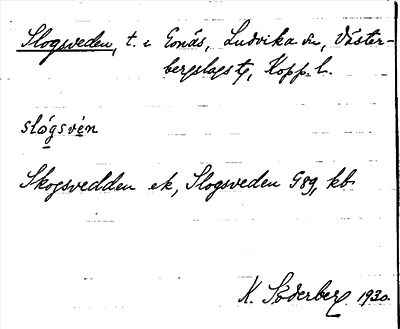 Slogsveden, t. i Gonäs, Ludvika sn, Väster-
bergslags tg, Kopp. l.
slógsvén
Skogsvedden ek, Slogsveden G89, kb.
K. Söderberg 1930.